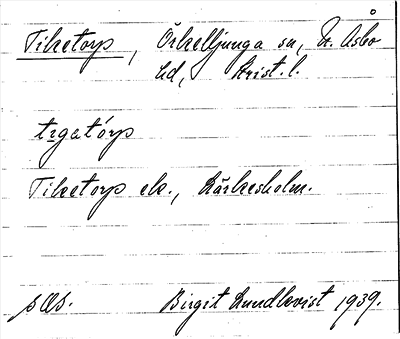 Tiketorp, Örkelljunga sn, N. Åsbo
hd, Krist. l.
tɪgatórp
Tiketorp ek., Kärkesholm.
sås.
Birgit Lundkvist 1939.